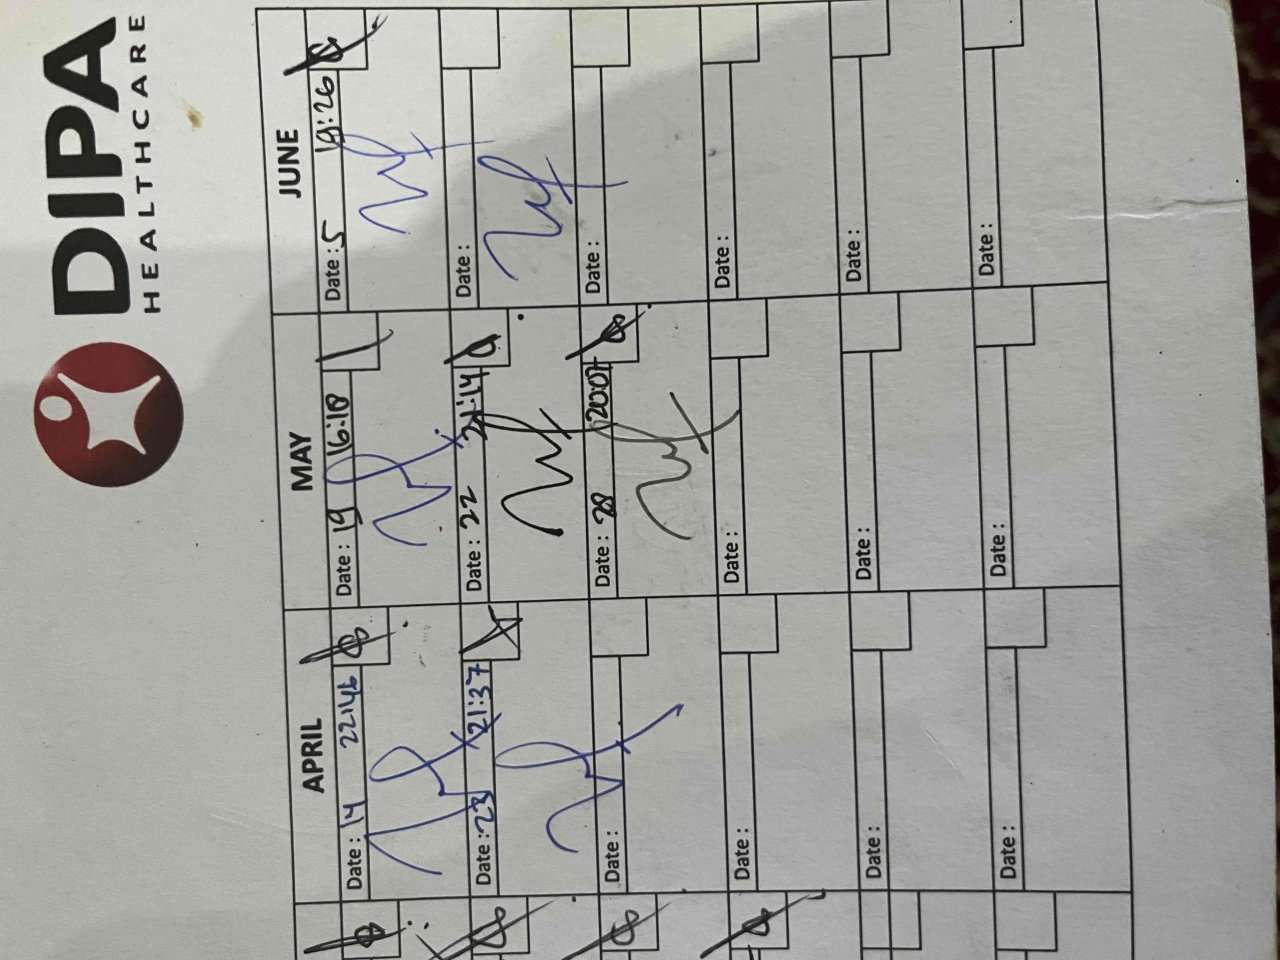 DIPA
HEALTHCARE
APRIL MAY JUNE
Date : 14 22:46 Date : 19 16:18 Date : 5 19:26
Date : 23 21:37 Date : 22 21:14 Date :
Date : Date : 28 20:07 Date :
Date : Date : Date :
Date : Date : Date :
Date : Date : Date :